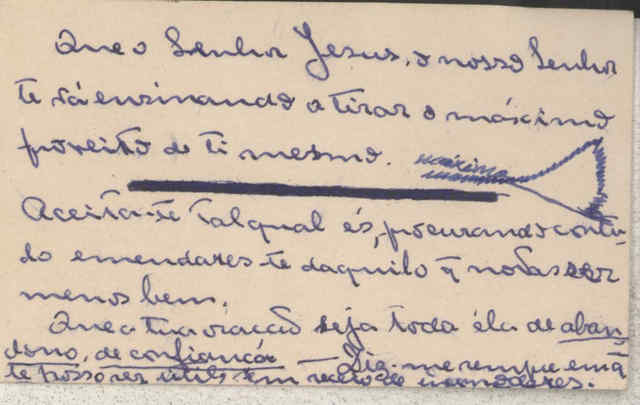 Que o Senhor Jesus, o nosso Senhor
te vá ensinando a tirar o máximo
proveito de ti mesmo.
Aceita-te tal qual és, procurando contu-
do emendares-te daquilo q notas ser
menos bem.
Que a tua oração seja toda ela de aban-
dono, de confiança — Diz-me sempre em q
te posso ser útil sem receio de incomodares.